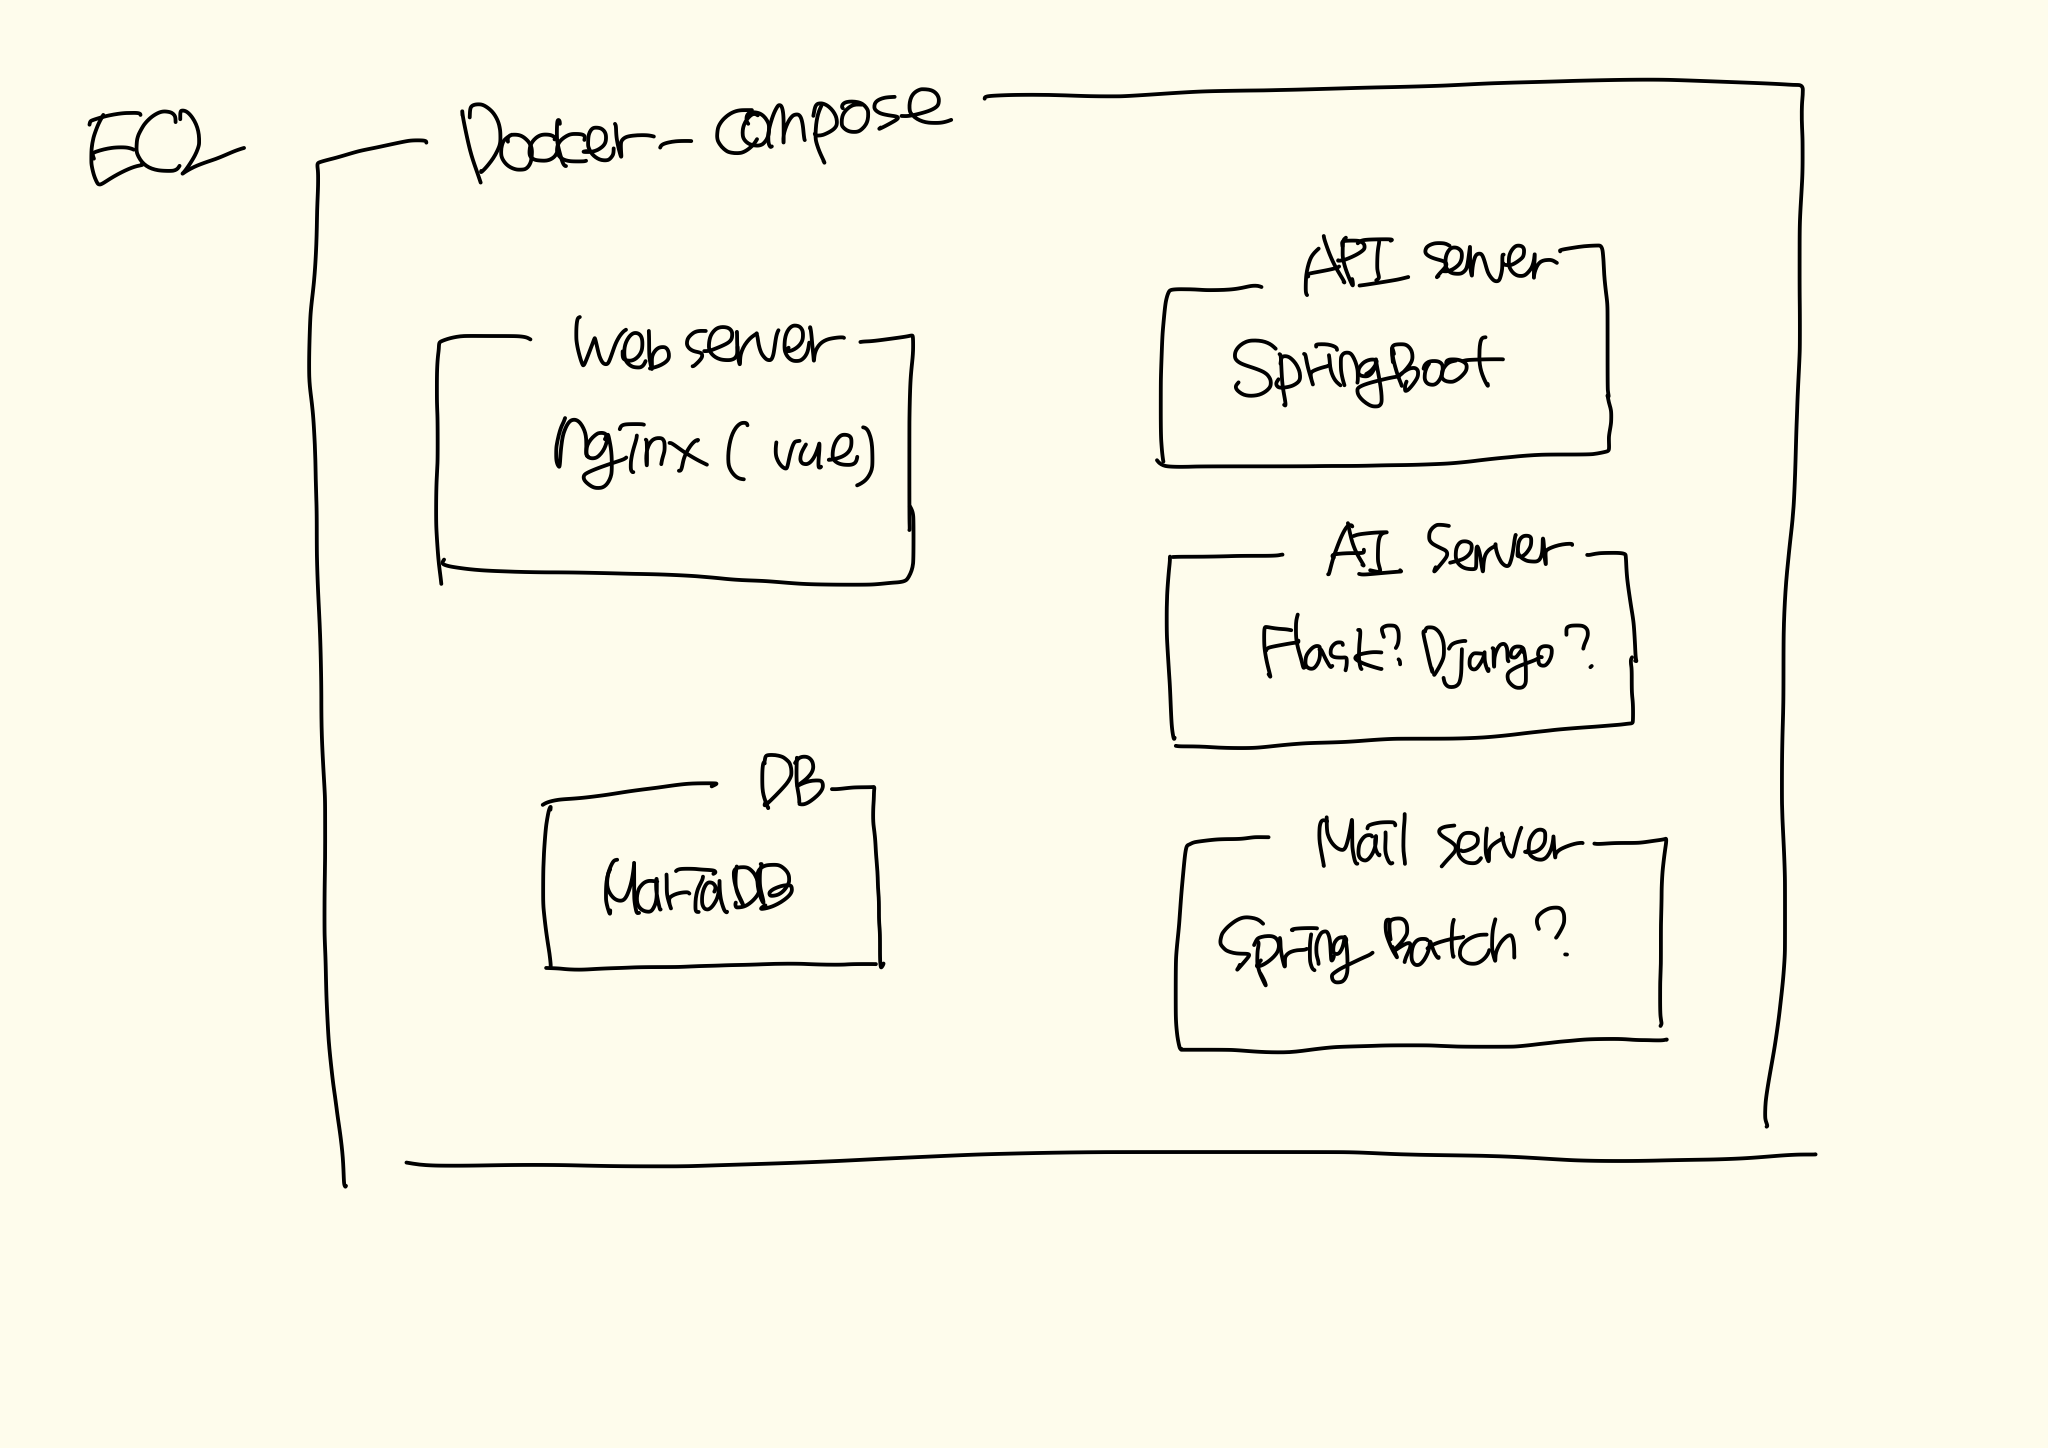 EC2
Docker-compose
Web server
nginx (vue)
DB
MariaDB
API server
SpringBoot
AI Server
Flask? Django?
Mail server
Spring Batch?